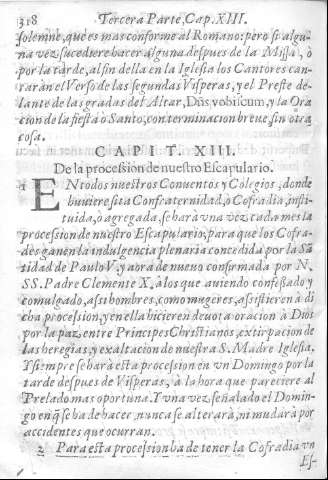 318 Tercera Parte, Cap. XIII.
solemne, que es mas conforme al Romano: pero si algu-
na vez sucediere hacer alguna despues de la Missa, ò
por la tarde, al fin della en la Iglesia los Cantores can-
raràn el Verso de las segundas Visperas, y el Preste de-
lante de las gradas del Altar, Dñs vobiscum, y la Ora
cion de la fiesta o Santo, con terminacion breve, sin otra
cosa.
CAPIT. XIII.
De la procession de nuestro Escapulario.
1 EN todos nuestros Conuentos y Colegios, donde
huuiere sita Confraternidad, ò Cofradia, insti-
tuida, ò agregada, se harà vna vez cada mes la
procession de nuestro Escapulario, para que los Cofra-
des ganen la indulgencia plenaria concedida por la Sã
tidad de Paulo V. y aora de nueuo confirmada por N.
SS. Padre Clemente X. à los que auiendo confessado y
comulgado, assi hombres, como mugeres, assistieren à di
cha procession, y en ella hicieren deuota oracion à Dios
por la paz entre Principes Christianos, extirpacion de
las heregias, y exaltacion de nuestra S. Madre Iglesia.
Y siempre se harà esta procession en vn Domingo por la
tarde despues de Visperas, à la hora que pareciere al
Prelado mas oportuna. Y vna vez señalado el Domin-
go en q̃ se ha de hacer, nunca se alterarà, ni mudarà por
accidentes que ocurran.
2 Para esta procession ha de tener la Cofradia vn
Es-